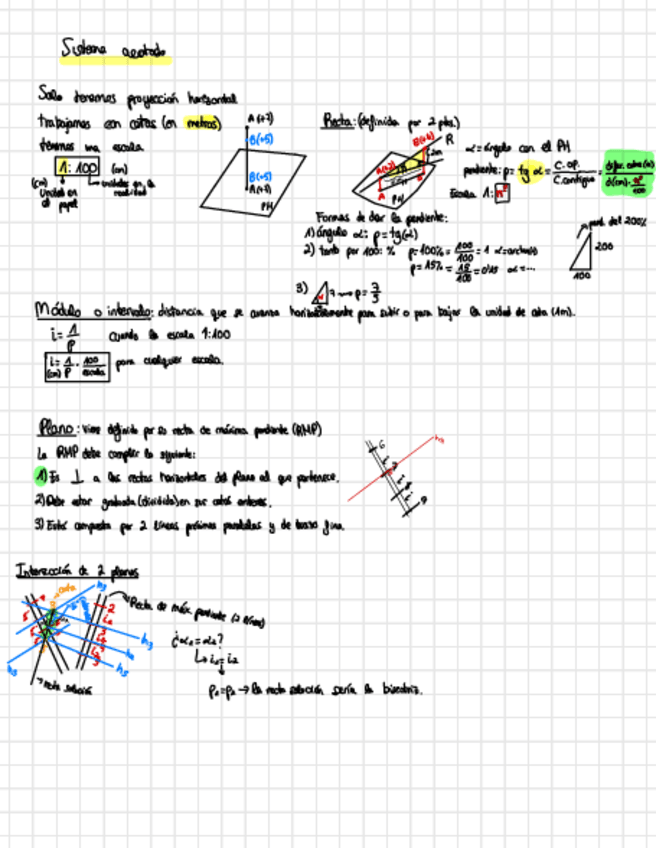 Sistema acotado
Solo tenemos proyección horizontal
trabajamos con cotas (en metros)
tenemos una escala
1:100 (m)
(cm)
unidad en el papel
unidades en la realidad
A(+7)
B(+5)
B(+5)
A(+7)
PH
Recta: (definida por 2 ptos.)
R
PH
α = ángulo con el PH
pendiente: p = tg α = C. op. / C. contiguo =
Escala 1:
Formas de dar la pendiente:
1) ángulo α: p = tg(α)
2) tanto por 100: % p=100% = 100/100 = 1
p=15% = 15/100 = 0'15 α = ...
pend. del 200%
200
100
3)
Módulo o intervalo: distancia que se avanza horizontalmente para subir o para bajar la unidad de cota (1m).
i = 1/p cuando la escala 1:100
i = 1/p · 100/escala para cualquier escala.
(cm)
Plano: viene definido por su recta de máxima pendiente (RMP)
La RMP debe cumplir lo siguiente:
1) Es ⊥ a las rectas horizontales del plano al que pertenece.
2) Debe estar graduada (dividida) en sus cotas enteras.
3) Está compuesta por 2 líneas próximas paralelas y de trazo fino.
Intersección de 2 planos
Recta de máx. pendiente
¿α₁=α₂?
↳ i₁=i₂
p₁=p₂ → la recta solución sería la bisectriz.
recta solución